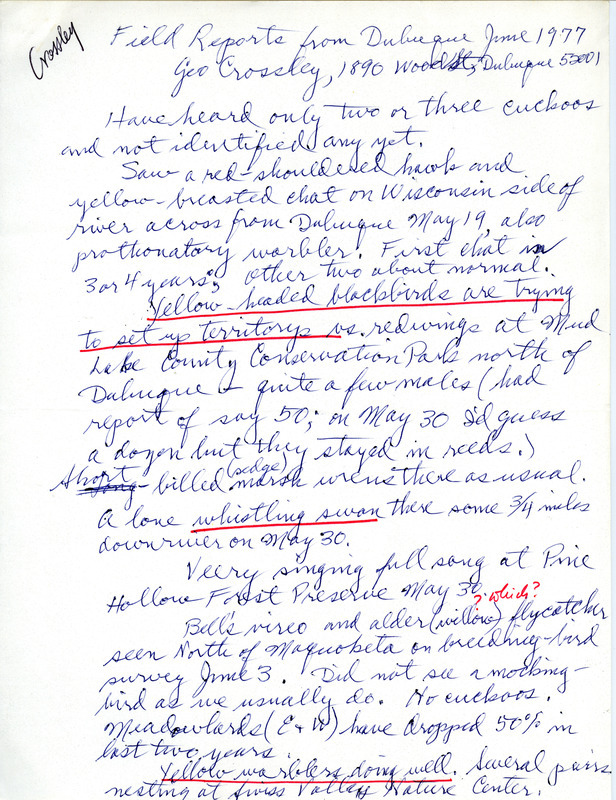 Crossley
Field Reports from Dubuque June 1977
Geo Crossley, 1890 Wood St, Dubuque 52001
Have heard only two or three cuckoos
and not identified any yet.
Saw a red-shouldered hawk and
yellow-breasted chat on Wisconsin side of
river across from Dubuque May 19, also
prothonatory warbler. First chat in
3 or 4 years; other two about normal.
Yellow-headed blackbirds are trying
to set up territorys vs. redwings at Mud
Lake County Conservation Park north of
Dubuque - quite a few males (had
report of say 50; on May 30 I'd guess
a dozen but they stayed in reeds.)
Short-billed (sedge) marsh wrens there as usual.
A lone whistling swan there some 3/4 miles
downriver on May 30.
Veery singing full song at Pine
Hollow Forest Preserve May 30.
? which?
Bell's vireo and alder (willow) flycatcher
seen North of Maquoketa on breeding-bird
survey June 3. Did not see a mocking-
bird as we usually do. No cuckoos.
Meadowlards (E + W) have dropped 50% in
last two years.
Yellow warblers doing well. Several pairs
nesting at Swiss Valley Nature Center.